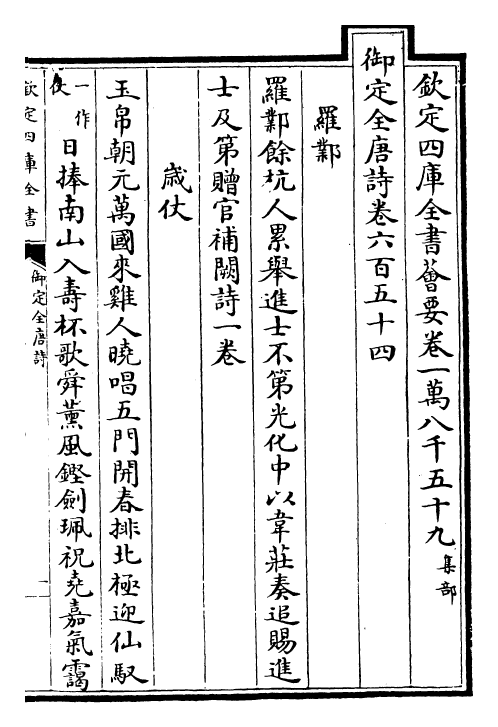 欽定四庫全書薈要卷一萬八千五十九 集部
御定全唐詩卷六百五十四
羅鄴
羅鄴餘杭人累舉進士不第光化中以韋莊奏追賜進
士及第贈官補闕詩一卷
歳仗
玉帛朝元萬國來雞人曉唱五門開春排北極迎仙馭
一作仗
日捧南山入壽杯歌舜薰風鏗劍珮祝堯嘉氣靄
欽定四庫全書
御定全唐詩
一